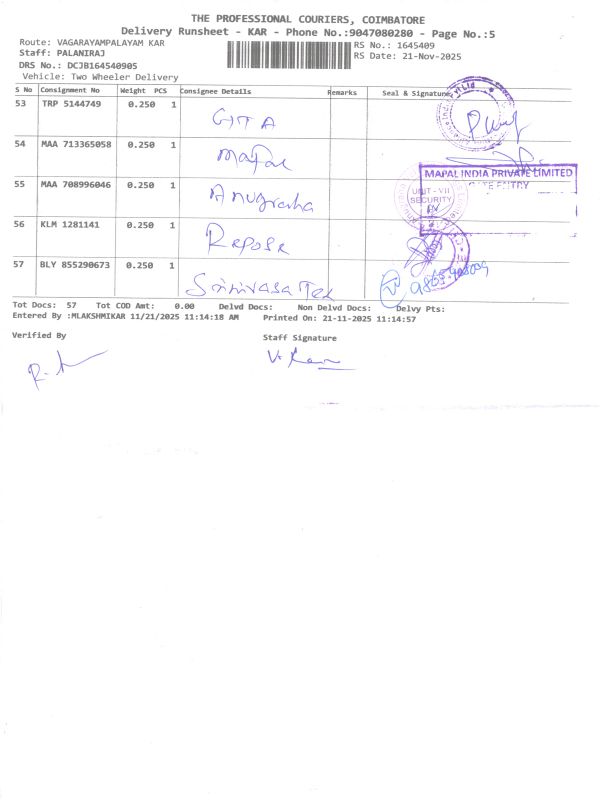 THE PROFESSIONAL COURIERS, COIMBATORE
Delivery Runsheet - KAR - Phone No.:9047080280 - Page No.:5
Route: VAGARAYAMPALAYAM KAR
RS No.: 1645409
Staff: PALANIRAJ
RS Date: 21-Nov-2025
DRS No.: DCJB164540905
Vehicle: Two Wheeler Delivery
S No Consignment No Weight PCS Consignee Details Remarks Seal & Signature
53 TRP 5144749 0.250 1 GTA
54 MAA 713365058 0.250 1 Mapal
MAPAL INDIA PRIVATE LIMITED
GATE ENTRY
55 MAA 708996046 0.250 1 Anugraha
UNIT - VII
SECURITY
56 KLM 1281141 0.250 1
57 BLY 855290673 0.250 1 Srinivasa Tex
Tot Docs: 57 Tot COD Amt: 0.00 Delvd Docs: Non Delvd Docs: Delvy Pts:
Entered By :MLAKSHMIKAR 11/21/2025 11:14:18 AM Printed On: 21-11-2025 11:14:57
Verified By
Staff Signature